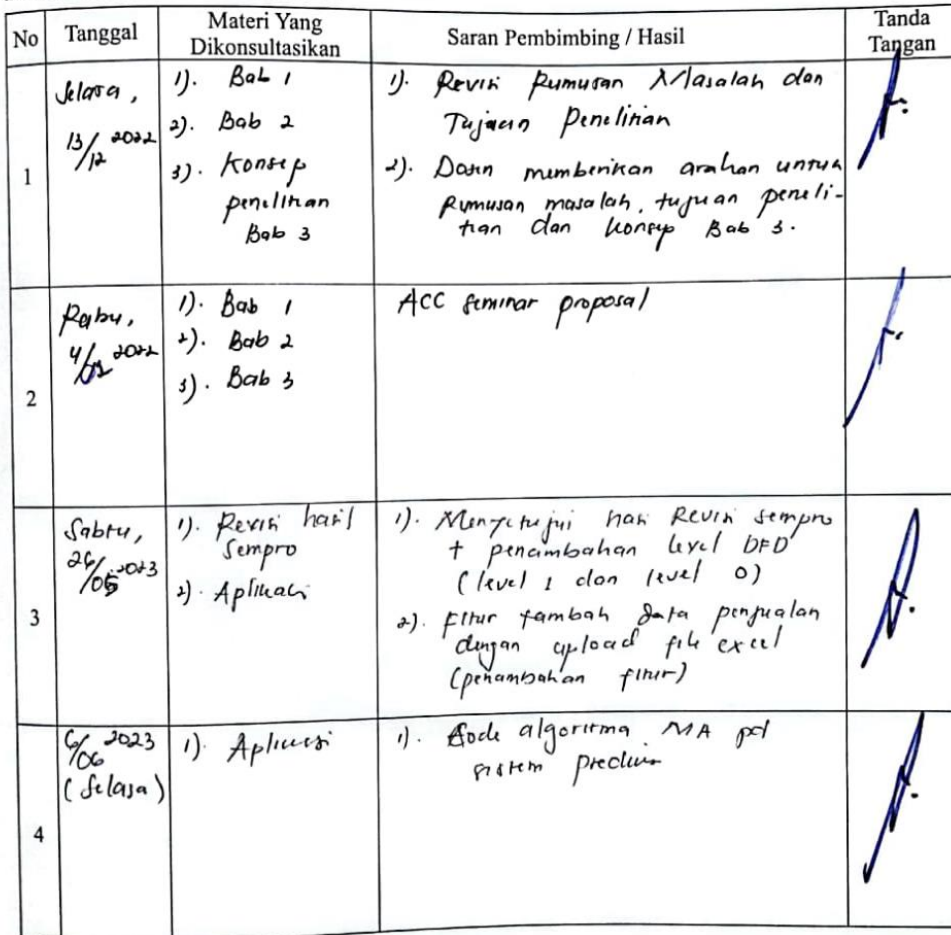 No Tanggal Materi Yang Dikonsultasikan Saran Pembimbing / Hasil Tanda Tangan
1
Selasa,
13/12 2022
1). Bab 1
2). Bab 2
3). Konsep
penelitian
Bab 3
1). Revisi Rumusan Masalah dan
Tujuan Penelitian
2). Dosen memberikan arahan untuk
Rumusan masalah, tujuan peneli-
tian dan konsep Bab 3.
2
Rabu,
4/ 2022
1). Bab 1
2). Bab 2
3). Bab 3
ACC seminar proposal
3
Sabtu,
/05 2023
1). Revisi hasil
Sempro
2). Aplikasi
1). Menyetujui hasi Revisi sempro
+ penambahan level DFD
(level 1 dan level 0)
2). Fitur tambah data penjualan
dengan upload file excel
(penambahan fitur)
4
6/06 2023
(Selasa)
1). Aplikasi
1). algoritma MA pd
sistem prediksi